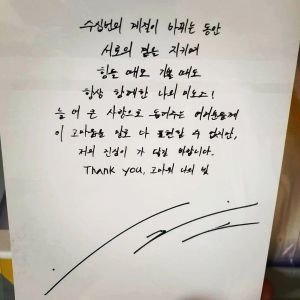 수십번의 계절이 바뀌는 동안
서로의 곁을 지키며
힘들 때도 기쁠 때도
항상 함께한 나의
늘 더 큰 사랑으로
이 고마움을 말로 다 표현할 수 없지만,
저의 진심이 가 닿길 바랍니다.
Thank you, 고마워 나의 빛